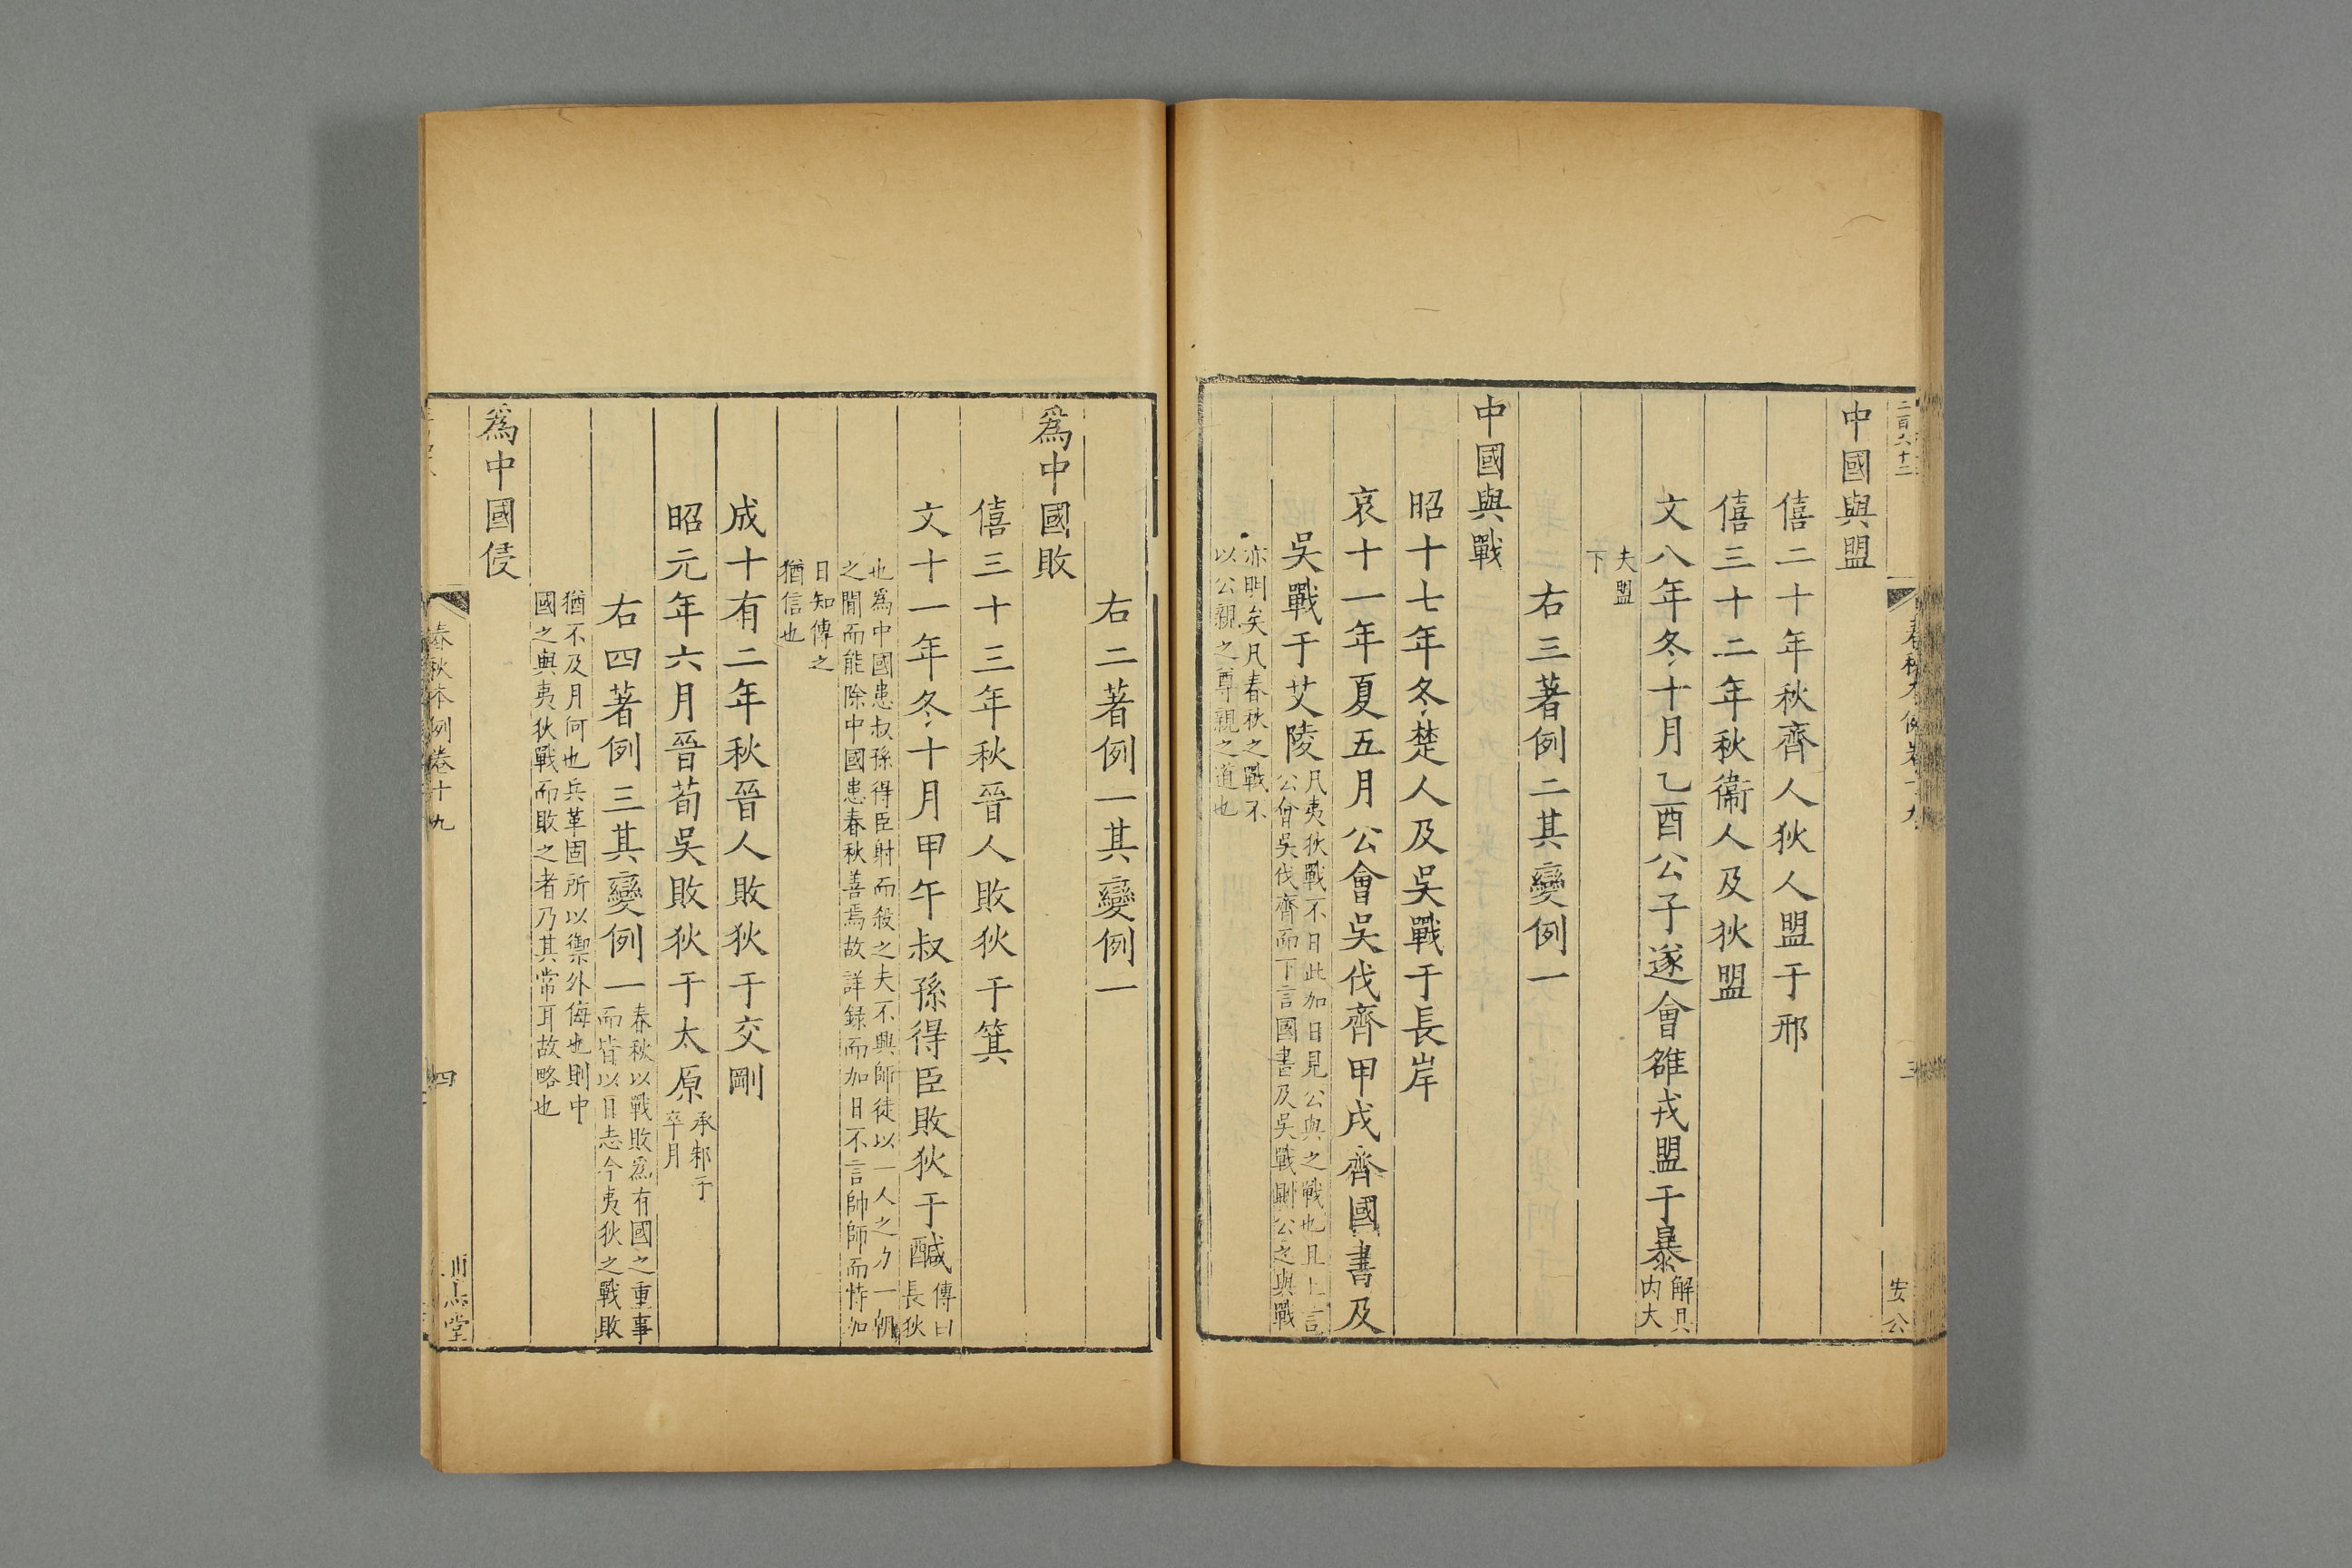 二百六十二
中國與盟
僖二十年秋齊人狄人盟于邢
僖三十二年秋衞人及狄盟
文八年冬十月乙酉公子遂會雒戎盟于暴解具内大
夫盟下
右三著例二其變例一
中國與戰
昭十七年冬楚人及吳戰于長岸
哀十一年夏五月公會吳伐齊甲戌齊國書及
吳戰于艾陵凡夷狄戰不日此加日見公與之戰也且上言公會吳伐齊而下言國書及吳戰則公之與戰
亦明矣凡春秋之戰不以公親之尊親之道也
春秋本例卷十九
三
安公
右二著例一其變例一
爲中國敗
僖三十三年秋晉人敗狄于箕
文十一年冬十月甲午叔孫得臣敗狄于鹹傳曰長狄
也爲中國患叔孫得臣射而殺之夫不興師徒以一人之力一朝之閒而能除中國患春秋善焉故詳録而加日不言帥師而特加
日知傳之猶信也
成十有二年秋晉人敗狄于交剛
昭元年六月晉荀吳敗狄于太原承邾子卒月
右四著例三其變例一春秋以戰敗爲有國之重事而皆以日志今夷狄之戰敗
猶不及月何也兵革固所以禦外侮也則中國之與夷狄戰而敗之者乃其常耳故略也
爲中國侵
春秋本例卷十九
四
堂